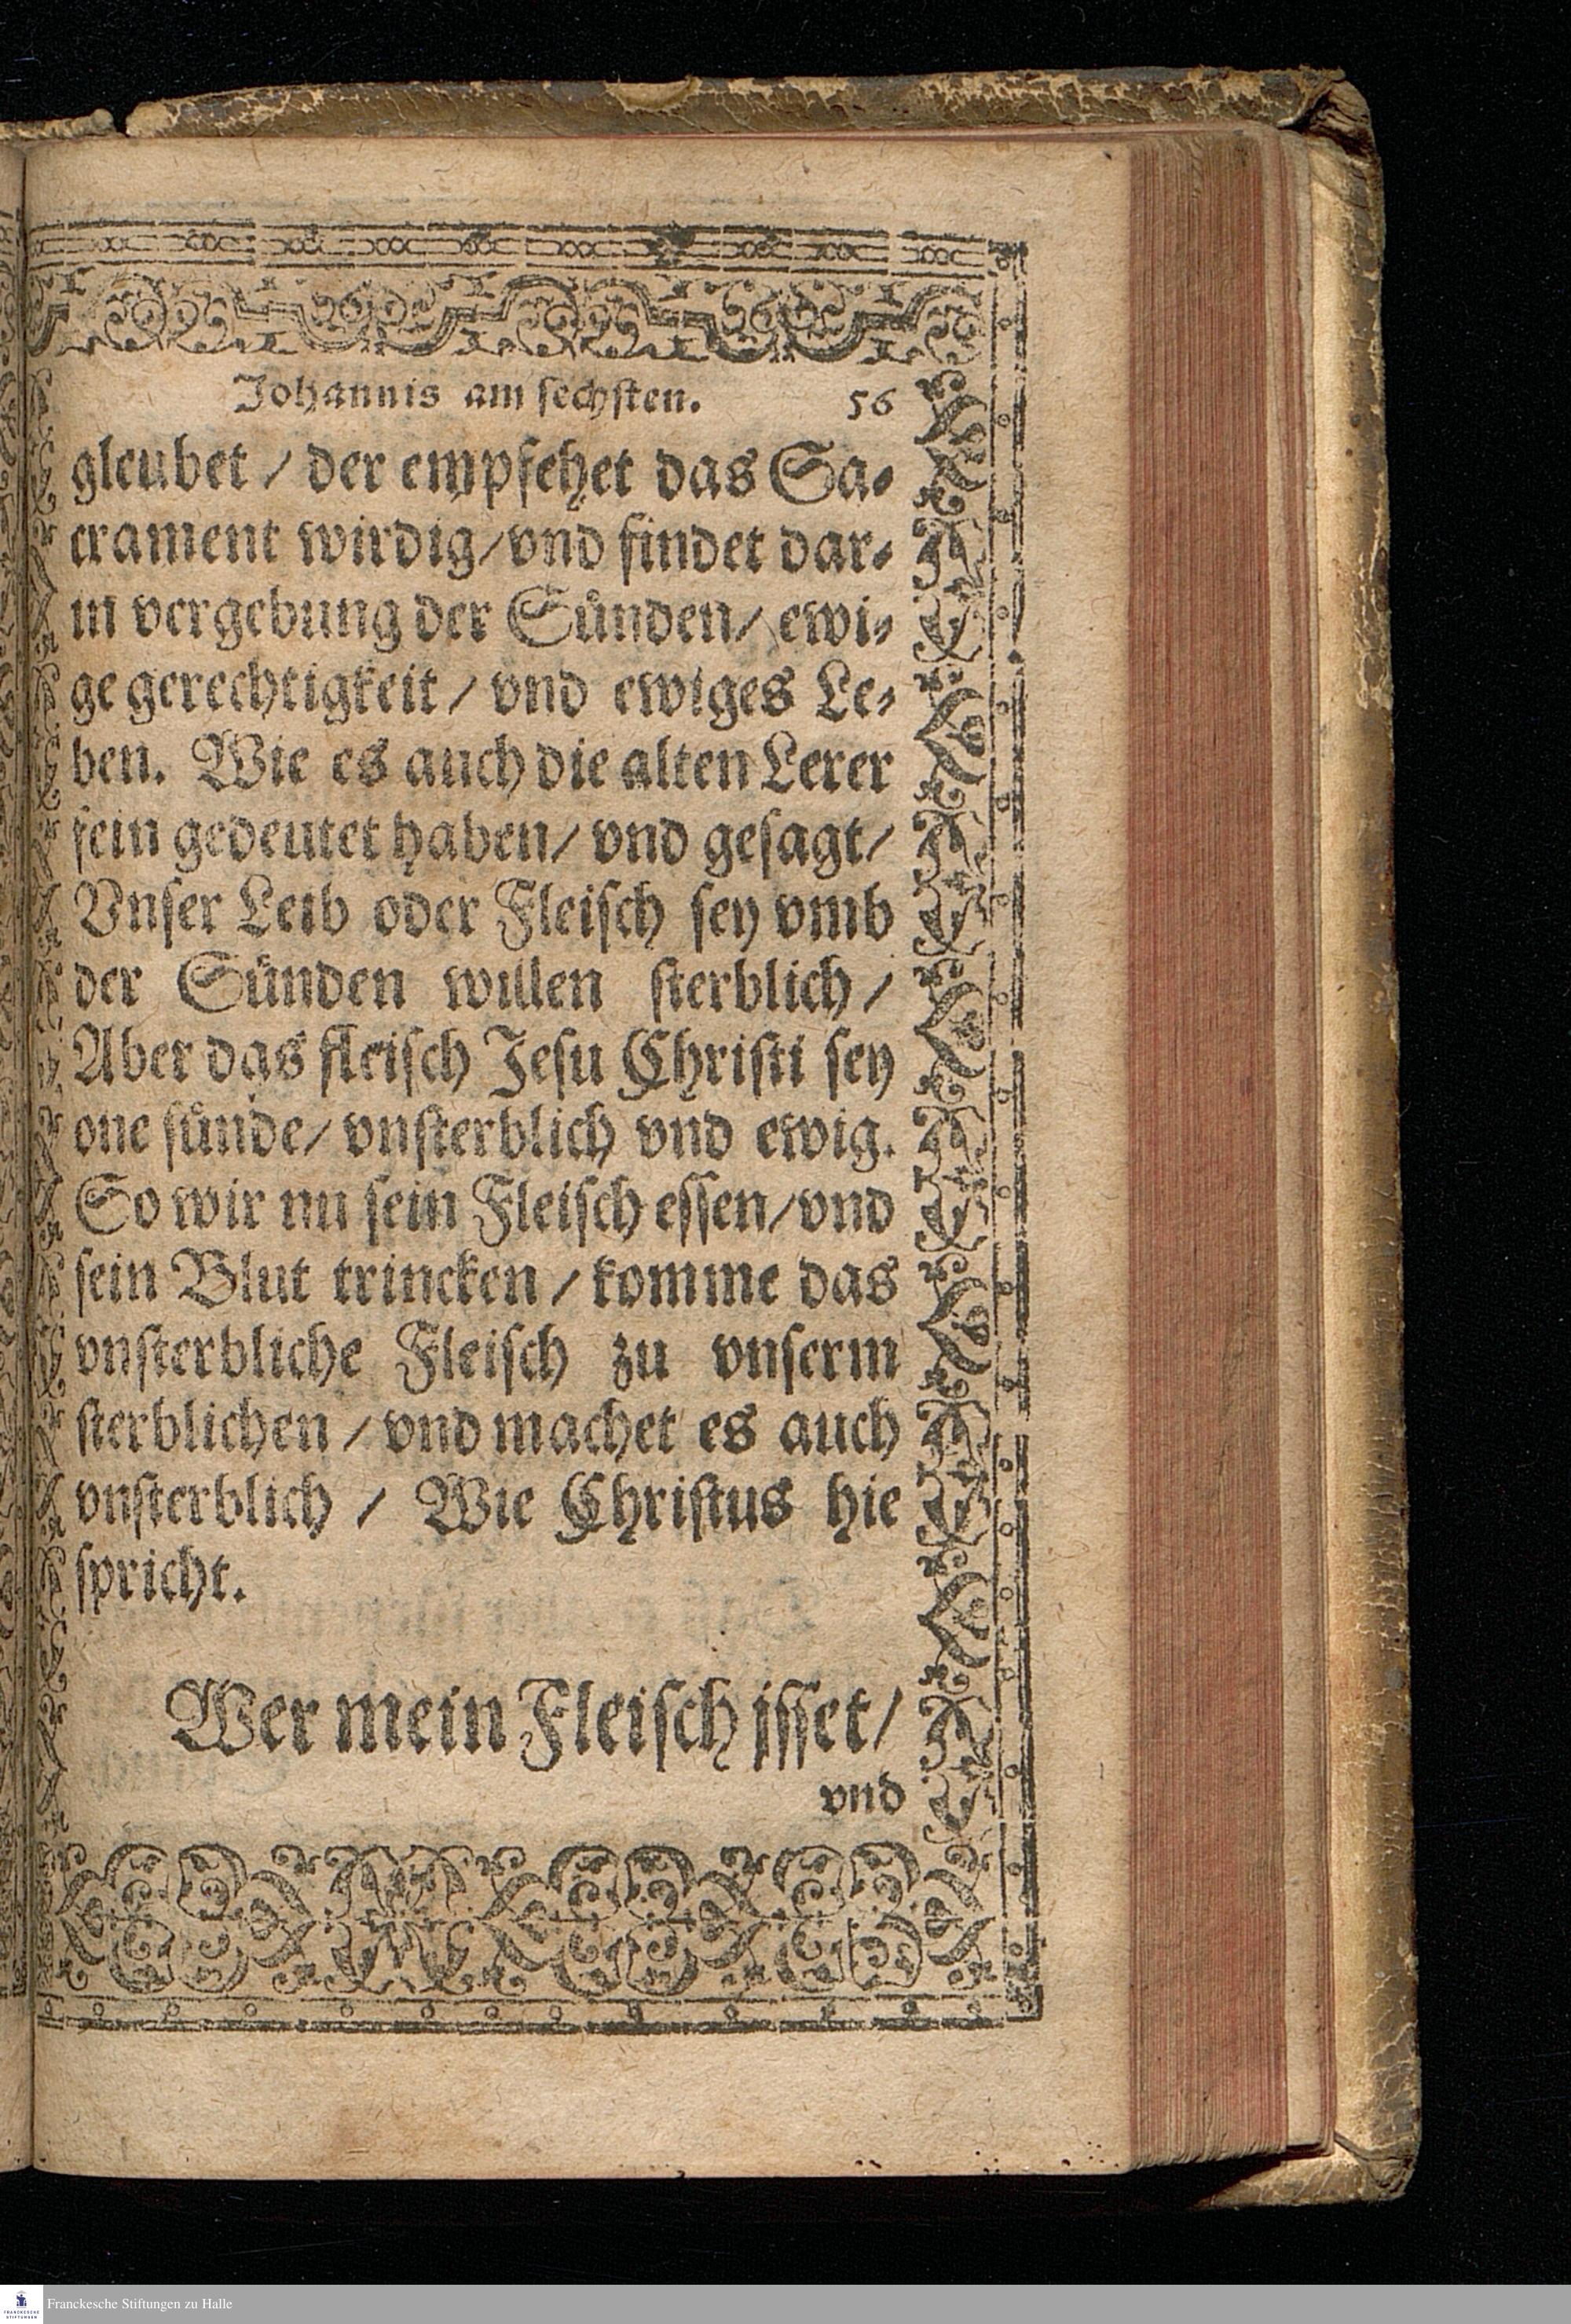 Johannis am sechsten. 56
gleubet / der empfehet das Sa⸗
crament wirdig / vnd findet dar⸗
in vergebung der Sünden / ewi⸗
ge gerechtigkeit / vnd ewiges Le⸗
ben. Wie es auch die alten Lerer
fein gedeutet haben / vnd gesagt /
Vnser Leib oder Fleisch sey vmb
der Sünden willen sterblich /
Aber das fleisch Jesu Christi sey
one sünde / vnsterblich vnd ewig.
So wir nu sein Fleisch essen / vnd
sein Blut trincken / komme das
vnsterbliche Fleisch zu vnserm
sterblichen / vnd machet es auch
vnsterblich / Wie Christus hie
spricht.
Wer mein Fleisch jsset /
vnd
FRANCKESCHE
STIFTUNGEN
Franckesche Stiftungen zu Halle